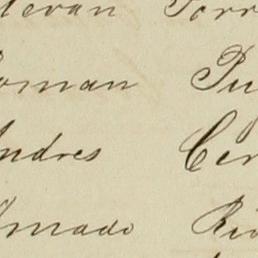 tevan Torr
oman Pu
ndres Cer
mado Riv